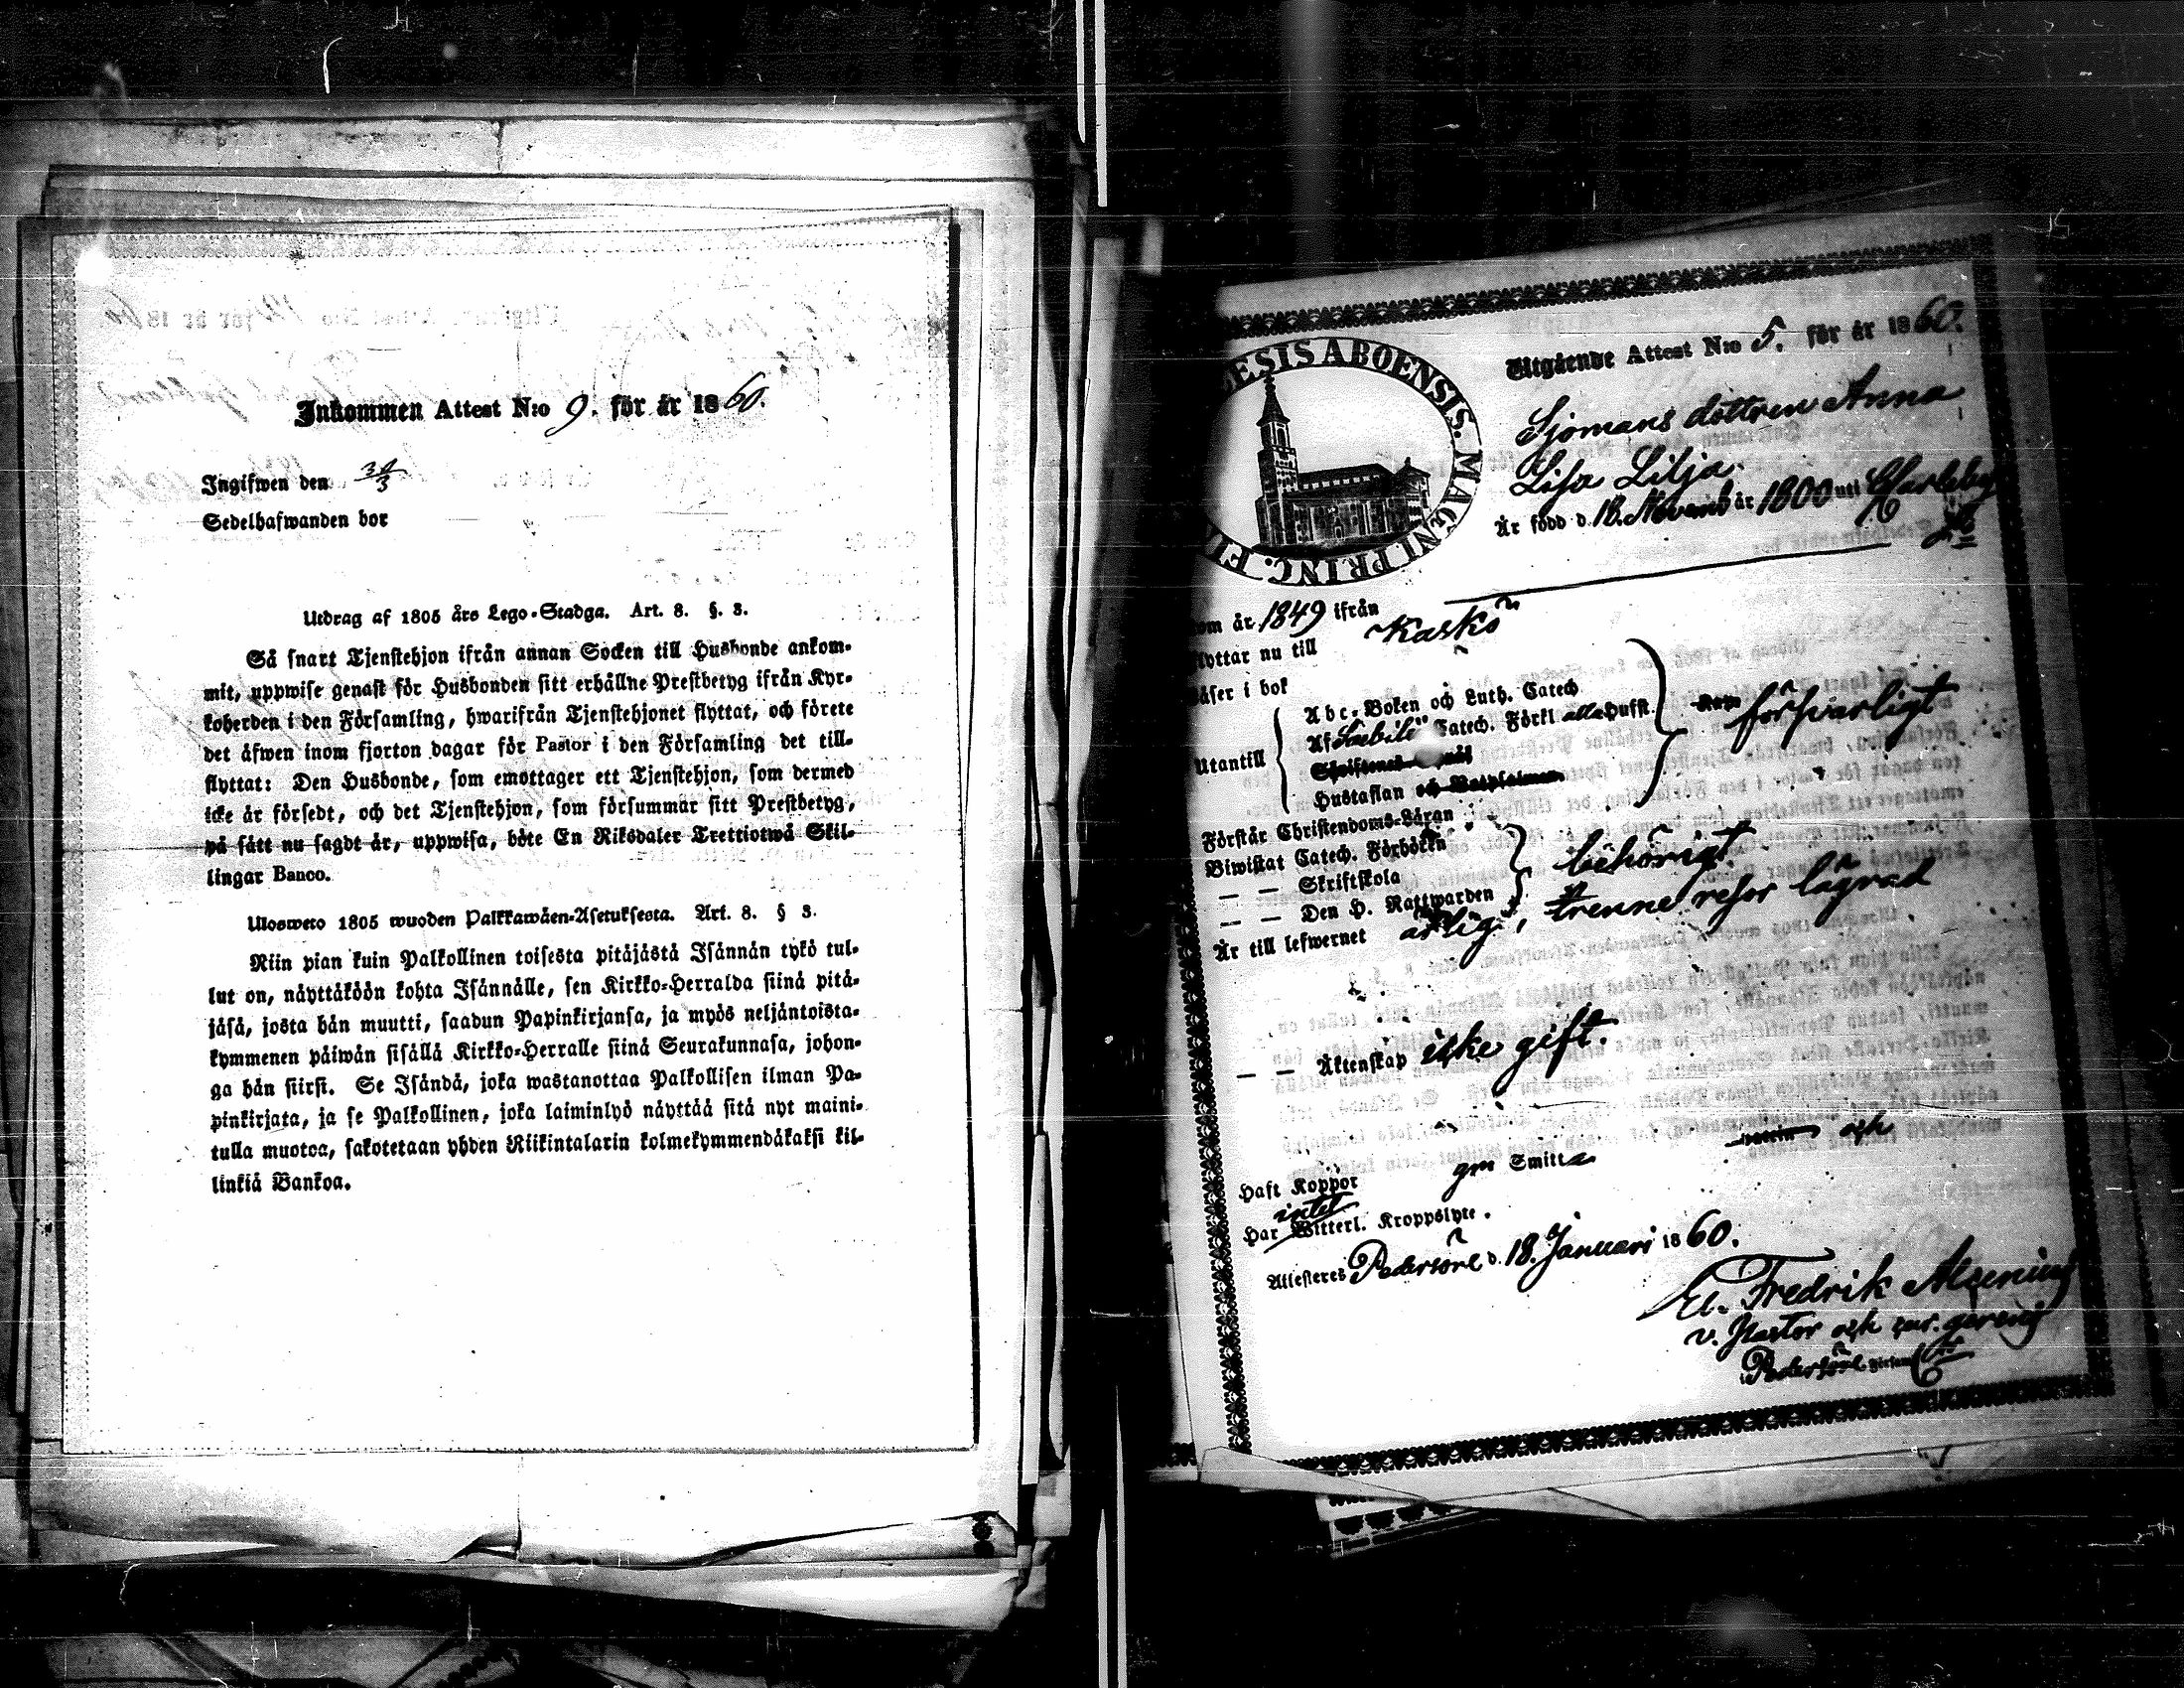 Inkommen Attest N:o 9. för år 1860.
Ingifwen den
Sedelhafwanden bor
Utdrag af 1805 års Lego-Stadga. Art. 8. §. 3.
Så snart Tjenstehjon ifrån annan Socken till Husbonde ankom-
mit, uppwise genast för Husbonden sitt erhållne Prestbetyg ifrån Kyr-
koherden i den Församling, hwarifrån Tjenstehjonet flyttat, och förete
det äfwen inom fjorton dagar för Pastor i den Församling det till-
flyttat: Den Husbonde, som emottager ett Tjenstehjon, som dermed
icke är försedt, och det Tjenstehjon, som försummar sitt Prestbetyg,
på sätt nu sagdt är, uppwisa, böte En Riksdaler Trettiotwå Skil-
lingar Banco.
Ulosweto 1805 wuoden Palkkawäen-Asetuksesta. Art. 8. § 3.
Niin pian kuin Palkollinen toisesta pitäjästä Isännän tykö tul-
lut on, näyttäköön kohta Isännälle, sen Kirkko-Herralda siinä pitä-
jäsä, josta hän muutti, saadun Papinkirjansa, ja myös neljäntoista-
kymmenen päiwän sisällä Kirkko-Herralle siinä Seurakunnasa, johon-
ga hän siirsi. Se Isändä, joka wastanottaa Palkollisen ilman Pa-
pinkirjata, ja se Palkollinen, joka laiminlyö näyttää sitä nyt maini-
tulla muotoa, sakotetaan yhden Riikintalarin kolmekymmendäkaksi kil-
linkiä Bankoa.
ESIS ABOENSIS. MAGNI PRINC. FI
Utgående Attest N:o 5. för år 1860.
Sjömans dottren Anna
Lisa Lilja.
Är född d. 18. Novemb år 1800 uti Carleby
om år 1849 ifrån
lyttar nu till Kaskö
äser i bok
Utantill
Abc-Boken och Luth. Catech
Af Catech. Förkl alla Hufst.
Hustaflan
försvarligt
Förstår Christendoms-Läran
Biwistat Catech. Förhören
— — Skriftskola
— — Den H. Nattwarden
behörigt
Är till lefwernet ärlig, trenne resor lägrad
— — Äktenskap icke gift.
Haft Koppor gm Smitta och
Har intet Witterl. Kroppslyte.
Attesteres Pedersöre d. 18. Januari 1860.
Fredrik
v. Pastor och
Pedersöre